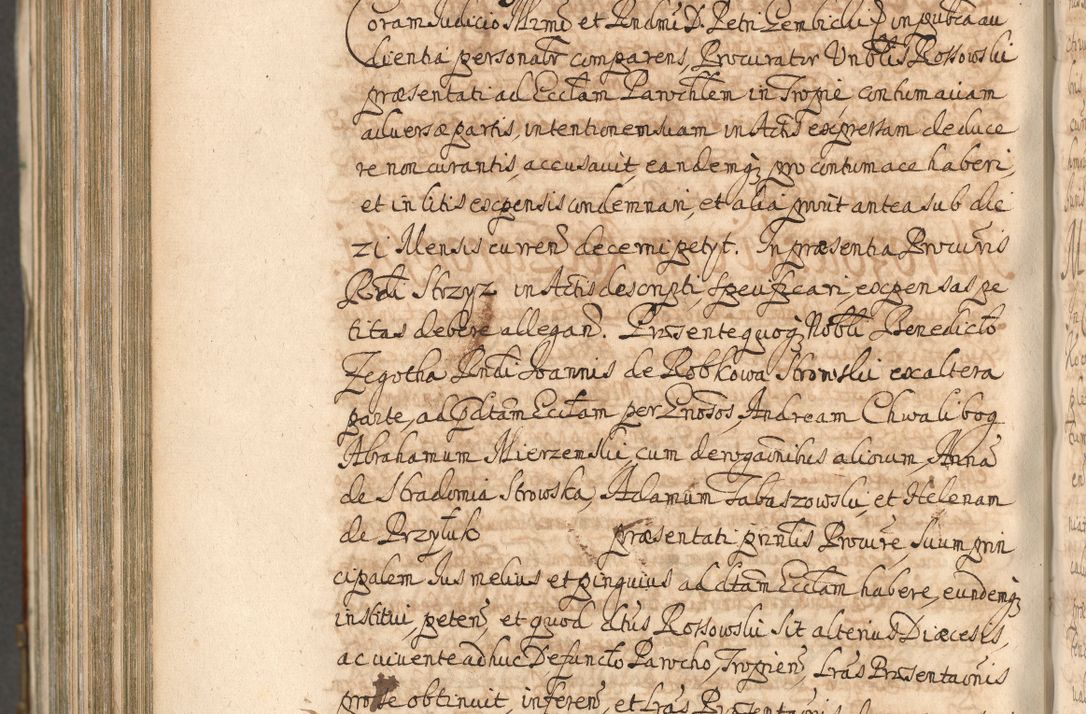 Coram Judicio Illrmi et Rndmi D. Petri Gembicki Eppi in publca au
dientia personalr comparens, Procurator Vnblis Rossowski
præsentati ad Ecclam Parochlem in Tropie contumaciam
adversæ partis, intentionem suam in Actis expressam deduce
re non curantis, accusavit eandemq, pro contumace haberi,
et in litis expensis condemnari, et alia prout antea sub die
21 Mensis curren decerni petyt. In præsentia Procuris
Rdi Strzyz in Actis descripti, specificari, expensas pe
titas debere allegan. Præsente quoq Nobli Benedicto
Zegotha Rndi Joannis de Robkowa Strowski ex altera
parte, ad pdtam Ecclam per Gnosos, Andream Chwalibog
Abrahamum Mierzenski, cum derogaonibus aliorum, Anna
de Stradomia Strowska, Adamum Tabaszowski, et Helenam
de Przyłusk præsentati prntis Procure suum prin
cipalem Jus melius et pinguius ad dtam Ecclam habere, eundemq
institui, peten, et quod dtus Rossowski sit alterius Diæcesis,
ac vivente adhuc Defuncto Parocho, Tropien, Lras Præsentaonis
prosse obtinuit, inferen, et Lras Præsentaonis